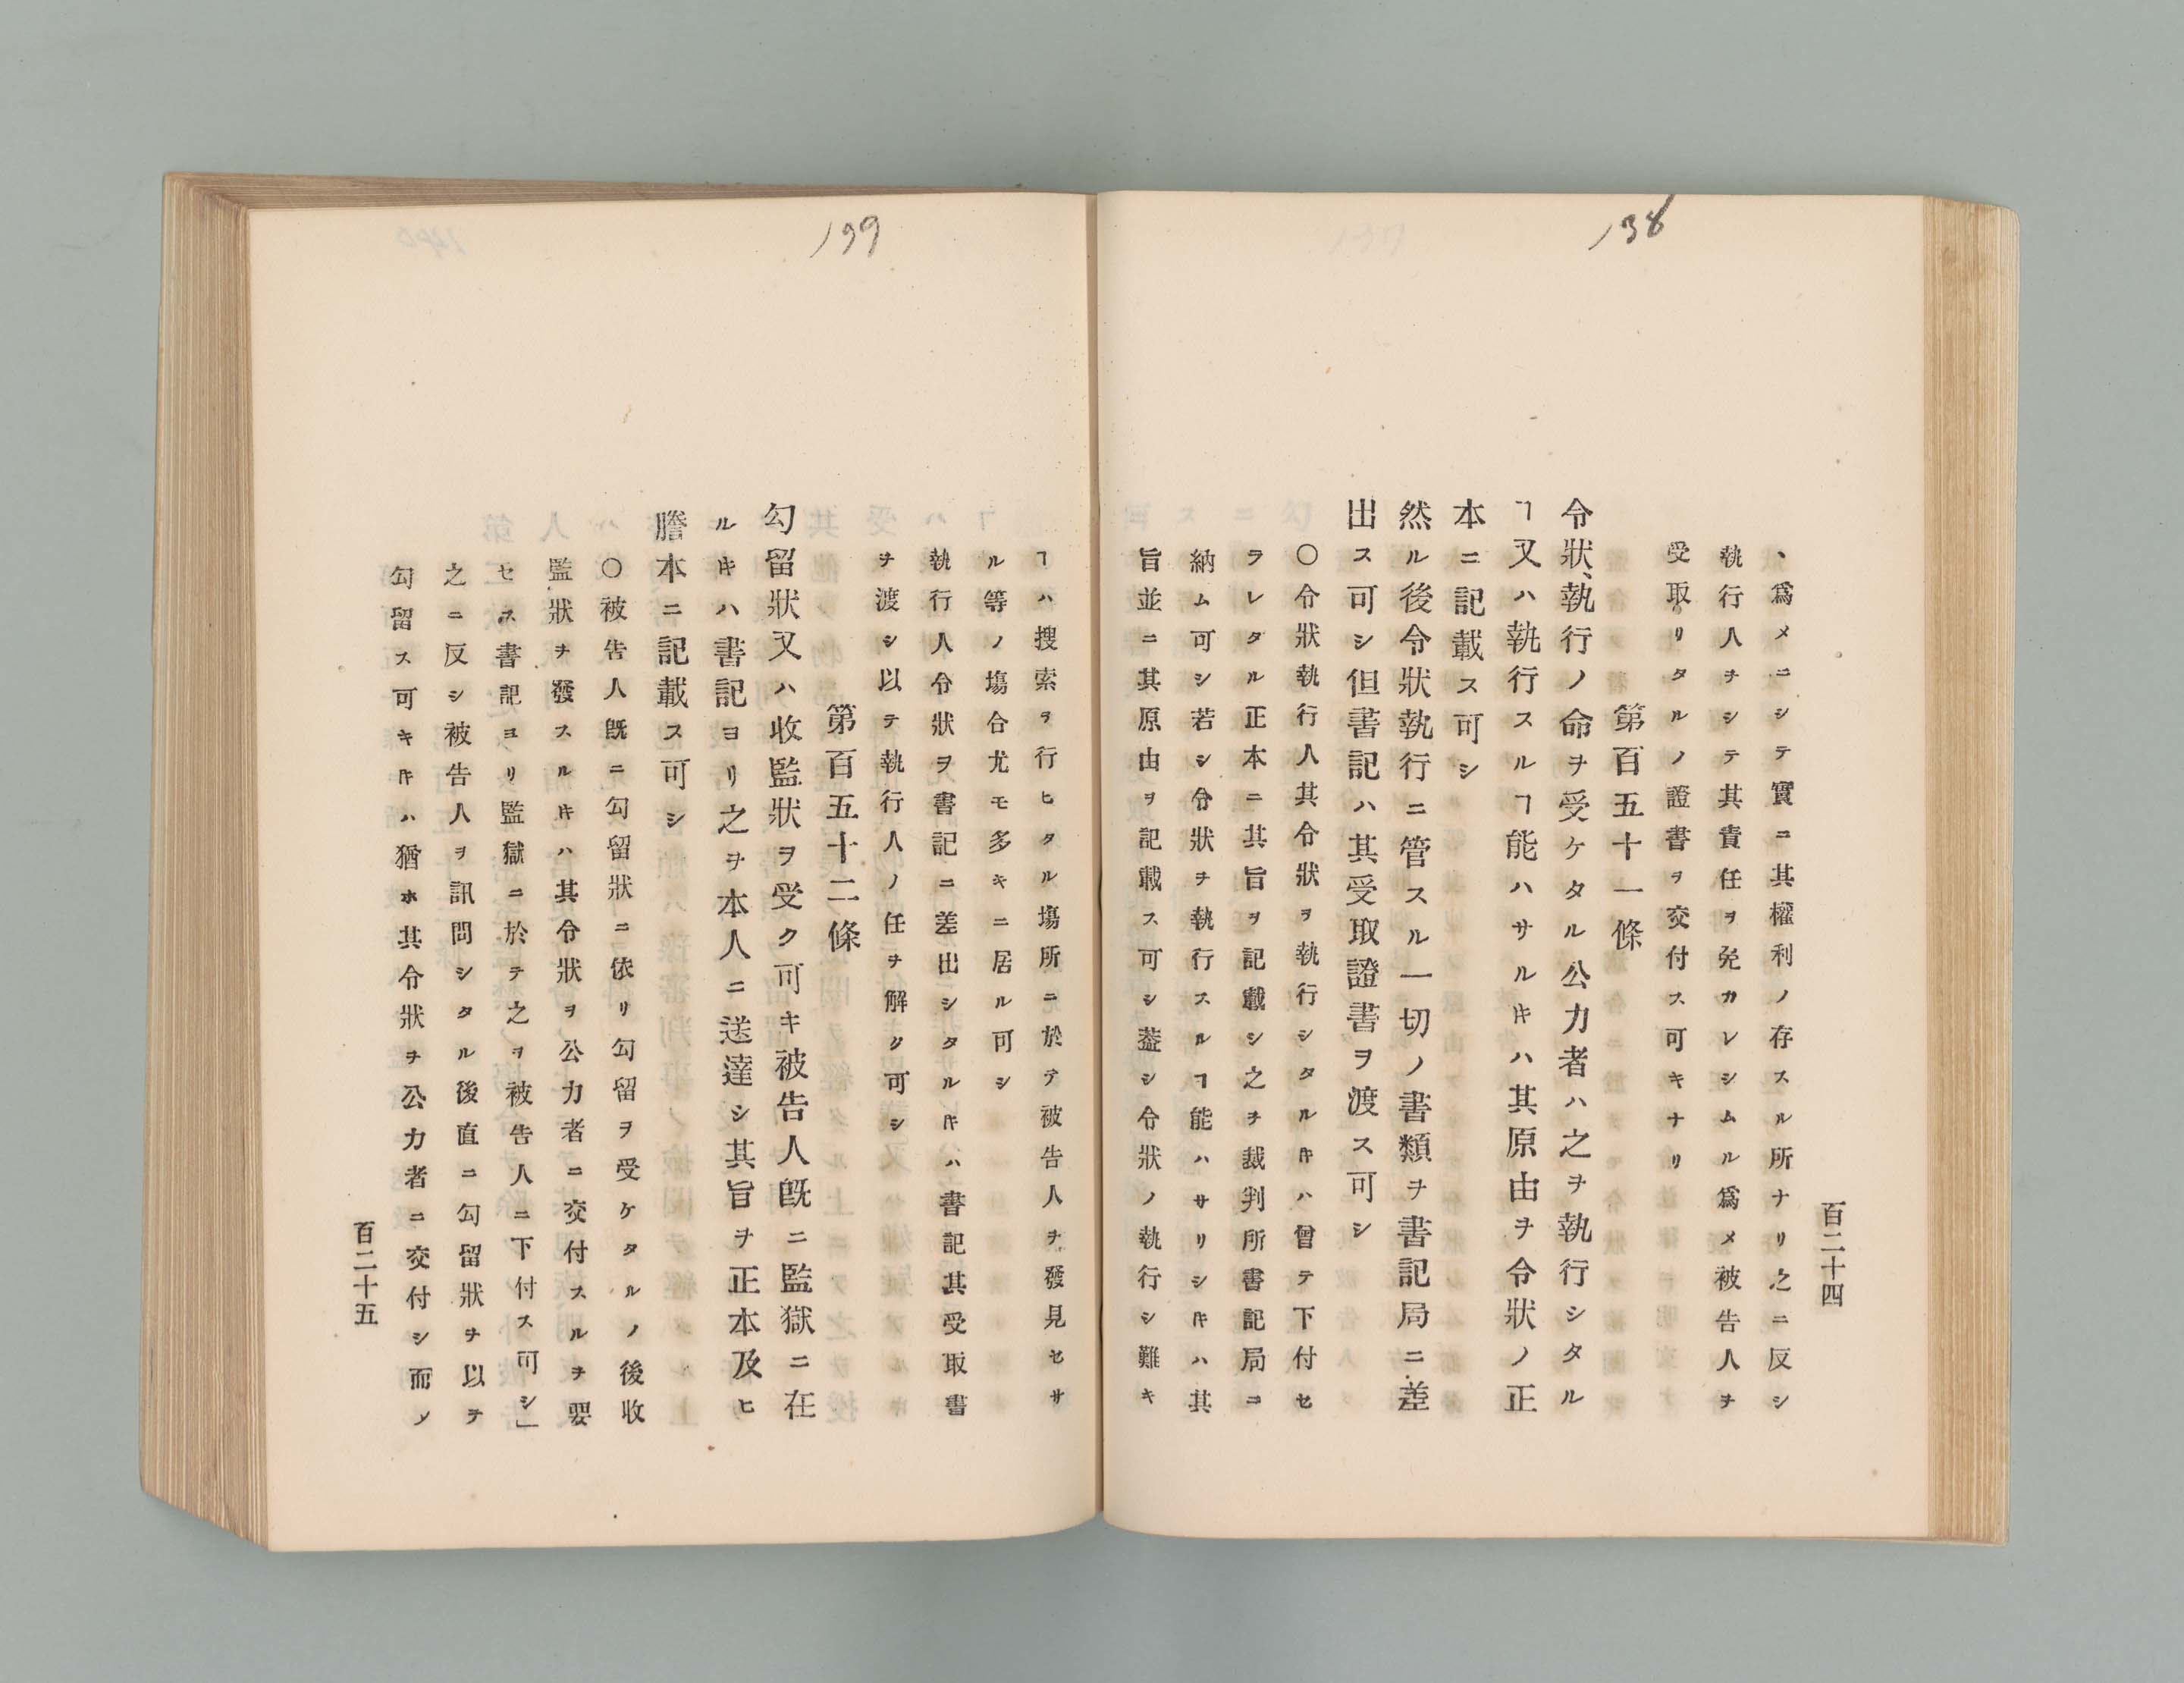 138
百二十四
、爲メニシテ實ニ其權利ノ存スル所ナリ之ニ反シ
執行人ヲシテ其責任ヲ免カレシムル爲メ被告人ヲ
受取リタルノ證書ヲ交付ス可キナリ
第百五十一條
令狀、執行ノ命ヲ受ケタル公力者ハ之ヲ執行シタル
ヿ又ハ執行スルヿ能ハサルキハ其原由ヲ令狀ノ正
本ニ記載ス可シ
然ル後令狀執行ニ管スル一切ノ書類ヲ書記局ニ差
出ス可シ但書記ハ其受取證書ヲ渡ス可シ
〇令狀執行人其令狀ヲ執行シタルキハ曾テ下付セ
ラレタル正本ニ其旨ヲ記載シ之ヲ裁判所書記局ニ
納ム可シ若シ令狀ヲ執行スルヿ能ハサリシキハ其
旨並ニ其原由ヲ記載ス可シ葢シ令狀ノ執行シ難キ
139
ヿハ搜索ヲ行ヒタル塲所ニ於テ被告人ヲ發見セサ
ル等ノ塲合尤モ多キニ居ル可シ
執行人令狀ヲ書記ニ差出シタルキハ書記其受取書
ヲ渡シ以テ執行人ノ任ヲ解ク可シ
第百五十二條
勾留狀又ハ收監狀ヲ受ク可キ被告人旣ニ監獄ニ在
ルキハ書記ヨリ之ヲ本人ニ送達シ其旨ヲ正本及ヒ
謄本ニ記載ス可シ
〇被告人旣ニ勾留狀ニ依リ勾留ヲ受ケタルノ後收
監狀ヲ發スルキハ其令狀ヲ公力者ニ交付スルヲ要
セス書記ヨリ監獄ニ於テ之ヲ被告人ニ下付ス可シ」
之ニ反シ被告人ヲ訊問シタル後直ニ勾留狀ヲ以テ
勾留ス可キキハ猶ホ其令狀ヲ公力者ニ交付シ而ノ
百二十五